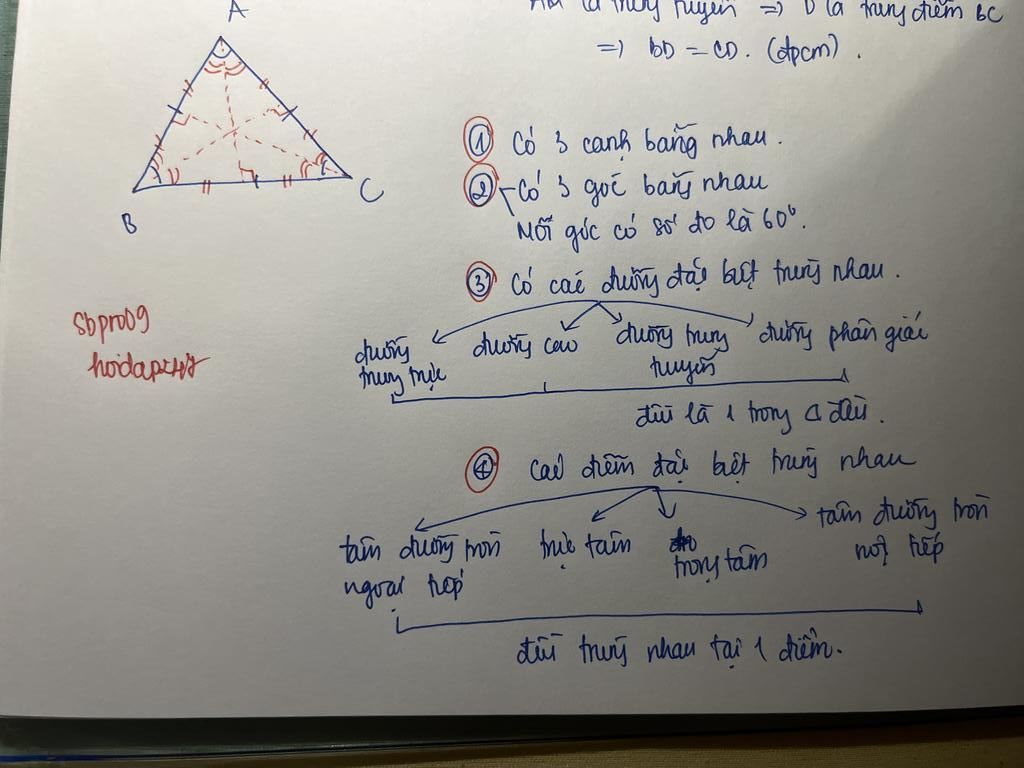 A
là trung tuyến => D là trung điểm BC
=> BD = CD. (đpcm).
① Có 3 cạnh bằng nhau.
② Có 3 góc bằng nhau
Mỗi góc có số đo là 60°.
③ Có các đường đặc biệt trùng nhau.
B
C
sbpro09
đường trung trực
đường cao
đường trung tuyến
đường phân giác
đều là 1 trong Δ đều.
④ các điểm đặc biệt trùng nhau
tâm đường tròn ngoại tiếp
trực tâm
trọng tâm
tâm đường tròn nội tiếp
đều trùng nhau tại 1 điểm.